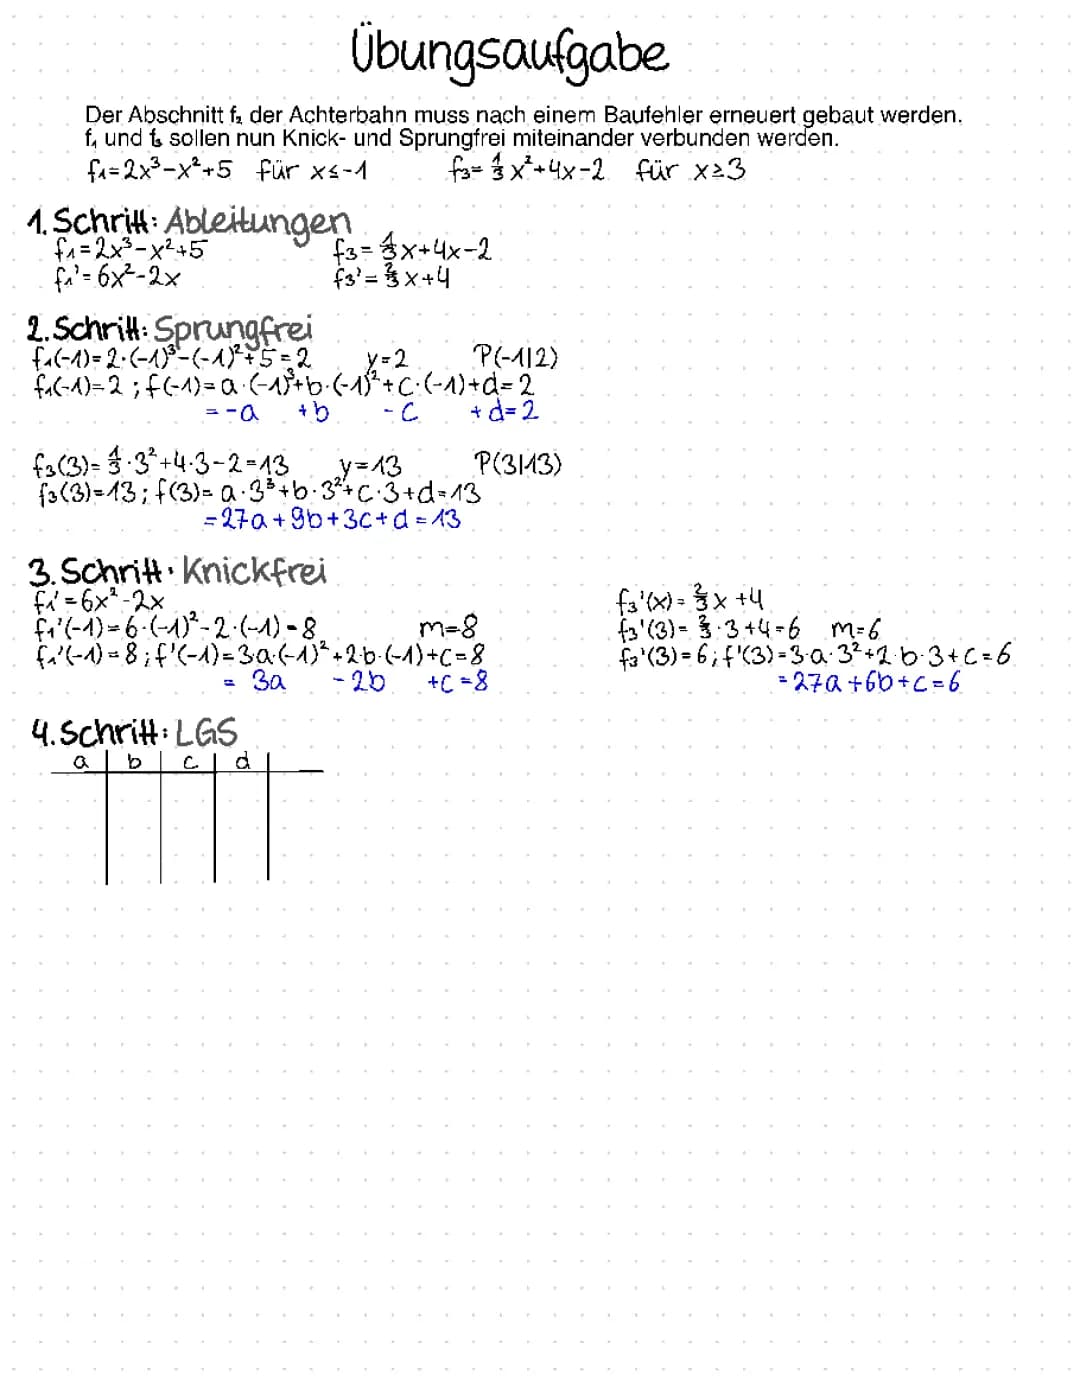 Übungsaufgabe
Der Abschnitt f₂ der Achterbahn muss nach einem Baufehler erneuert gebaut werden.
f₁ und f₃ sollen nun Knick- und Sprungfrei miteinander verbunden werden.
f₁=2x³-x²+5 für x≤-1 f₃=⅓x²+4x-2 für x≥3
1. Schritt: Ableitungen
f₁=2x³-x²+5 f₃=⅓x+4x-2
f₁'=6x²-2x f₃'=⅔x+4
2. Schritt: Sprungfrei
f₁(-1)=2·(-1)³-(-1)²+5=2 y=2 P(-1|2)
f₁(-1)=2; f(-1)=a·(-1)³+b·(-1)²+c·(-1)+d=2
=-a +b -c +d=2
f₃(3)=⅓·3²+4·3-2=13 y=13 P(3|13)
f₃(3)=13; f(3)=a·3³+b·3²+c·3+d=13
=27a+9b+3c+d=13
3. Schritt: Knickfrei
f₁'=6x²-2x
f₁'(-1)=6·(-1)²-2·(-1)=8 m=8
f₁'(-1)=8; f'(-1)=3a·(-1)²+2·b·(-1)+c=8
= 3a -2b +c=8
f₃'(x)=⅔x+4
f₃'(3)=⅔·3+4=6 m=6
f₃'(3)=6; f'(3)=3·a·3²+2·b·3+c=6
=27a+6b+c=6
4. Schritt: LGS
a b c d